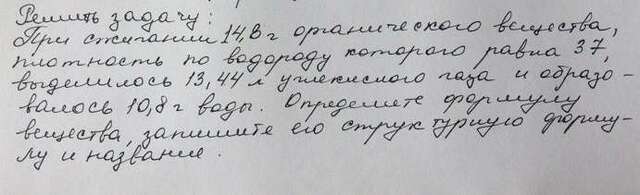 Решить задачу:
При сжигании 14,8 г органического вещества,
плотность по водороду которого равна 37,
выделилось 13,44 л углекислого газа и образо-
валось 10,8 г воды. Определите формулу
вещества, запишите его структурную форму-
лу и название.